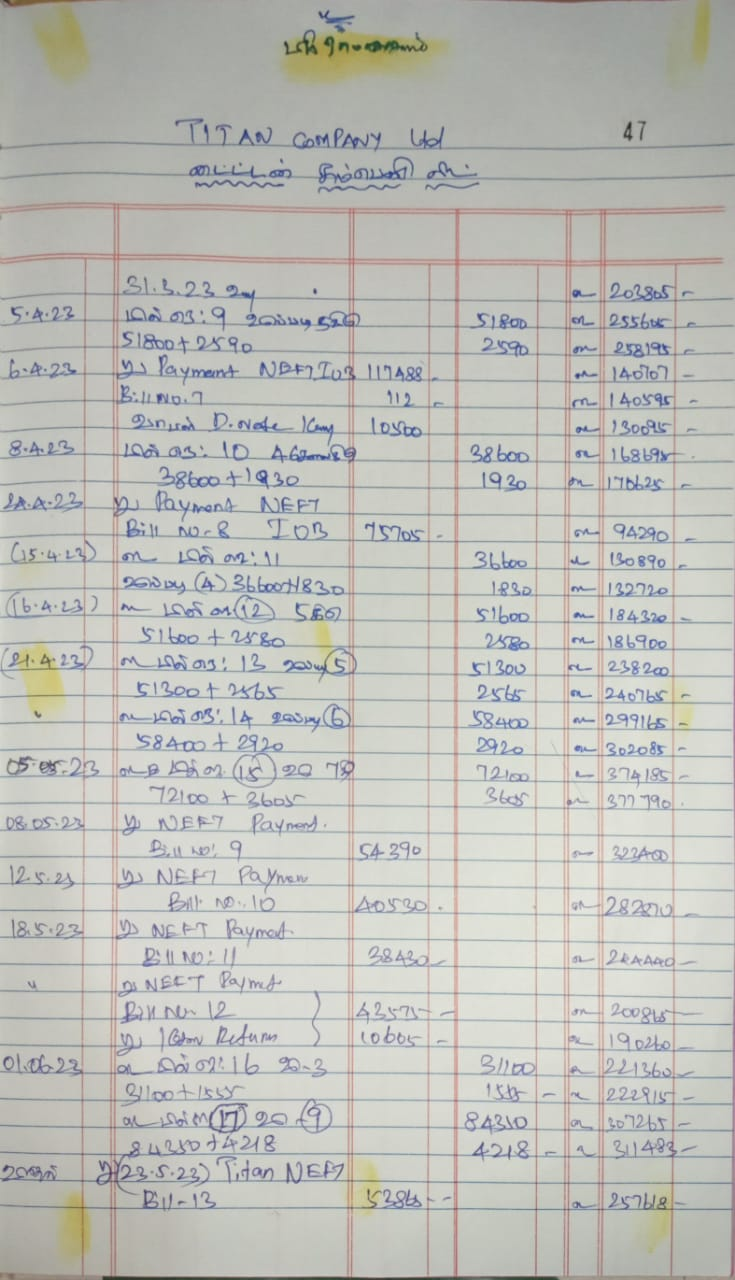 TITAN COMPANY Ltd 47
டைட்டன் கம்பெனி லிட்
31.3.23 203805 -
5.4.23 பில் நெ: 9 51800 255605 -
51800 + 2590 2590 258195 -
6.4.23 Payment NEFT IOB 117488 - 140707 -
Bill No. 7 112 - 140595 -
D.Note 10500 130095 -
8.4.23 பில் நெ: 10 38600 168695 -
38600 + 1930 1930 170625 -
Payment NEFT
Bill No-8 IOB 75705 - 94290 -
(15.4.23) பில் நெ: 11 36600 130890 -
(4) 36600+1830 1830 132720
(16.4.23) பில் நெ 12 51600 184320 -
51600 + 2580 2580 186900
(21.4.23) பில் நெ: 13 5 51300 238200
51300 + 2565 2565 240765 -
" பில் நெ: 14 6 58400 299165 -
58400 + 2920 2920 302085 -
05.05.23 பில் நெ 15 72100 374185 -
72100 + 3605 3605 377790
08.05.23 NEFT Payment.
Bill No: 9 54390 323400
12.5.23 NEFT Paymen
Bill. No.: 10 40530 . 282870 -
18.5.23 NEFT Payment.
Bill No: 11 38430 - 244440 -
" NEFT Paymet
Bill No- 12 43575 - 200865 -
Return 10605 - 190260 -
01.06.23 பில் நெ: 16 31100 221360 -
31100 + 1555 1555 - 222915 -
பில் நெ 17 9 84350 307265 -
84350 + 4218 4218 - 311483 -
(23.5.23) Titan NEFT
Bill-13 53865 - 257618 -